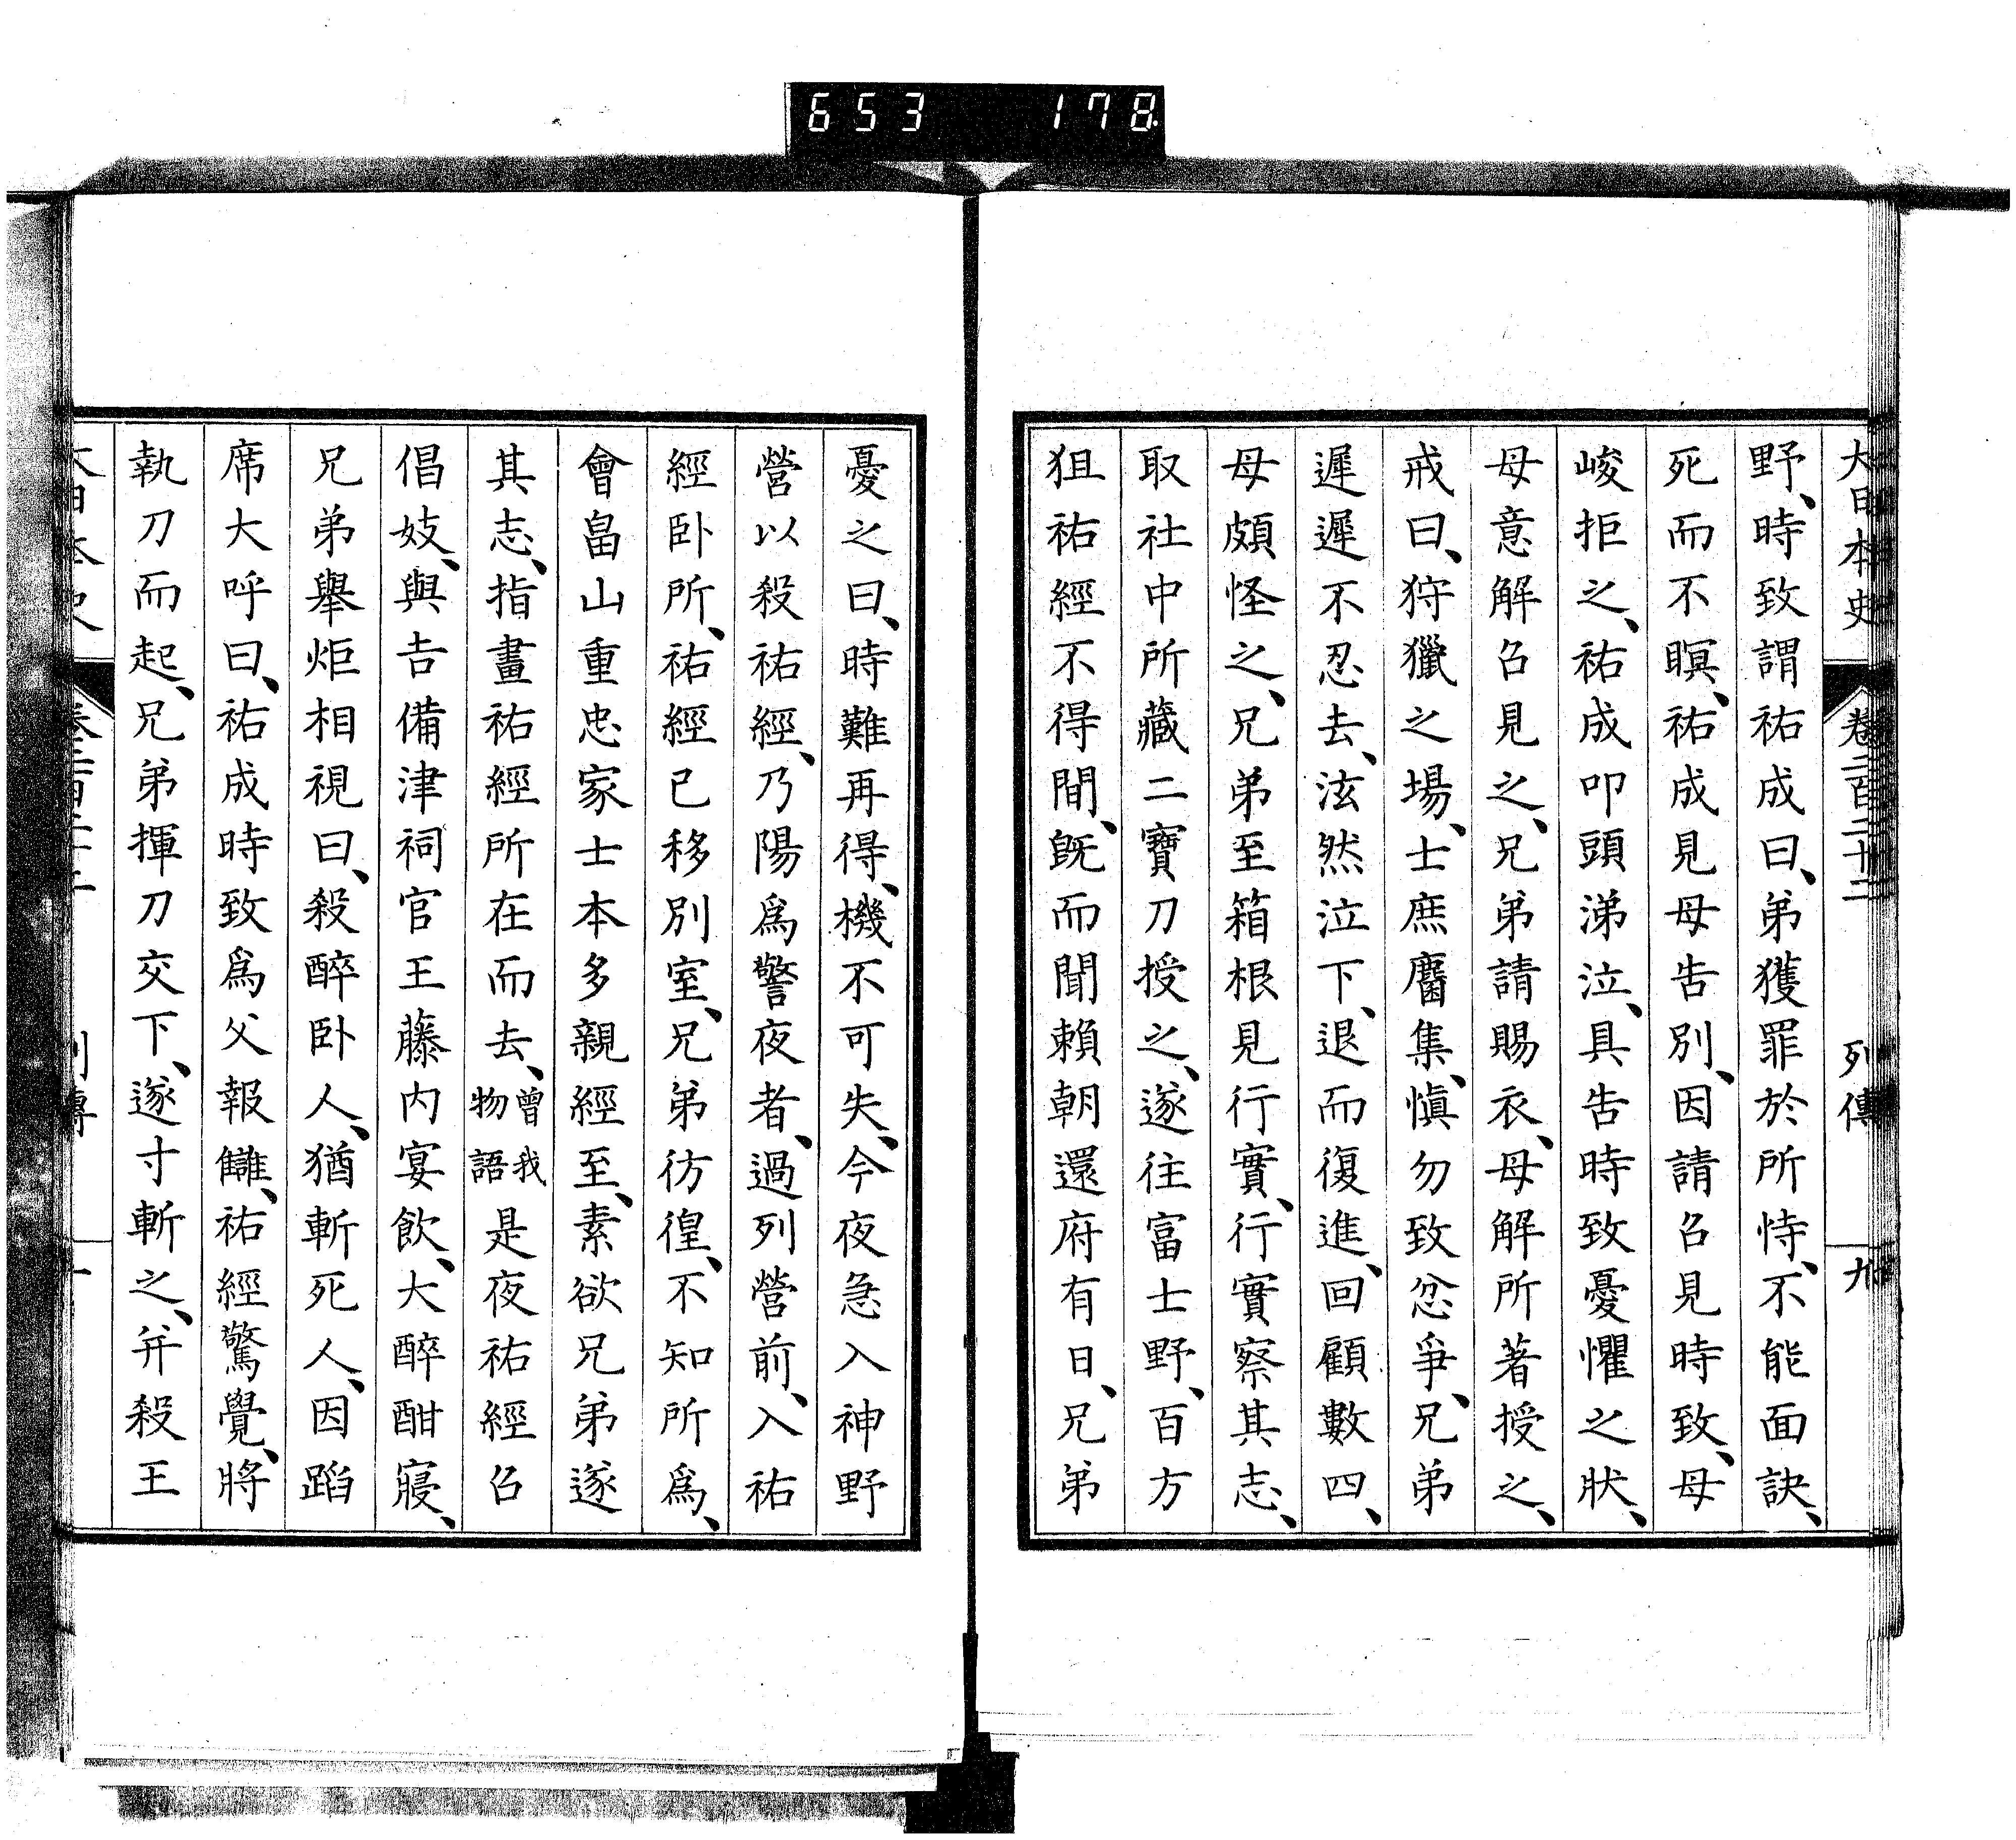 653 178
大日本史 卷二百二十二 列傳 九
野、時致謂祐成曰、弟獲罪於所恃、不能面訣、
死而不瞑、祐成見母告別、因請召見時致、母
峻拒之、祐成叩頭涕泣、具告時致憂懼之狀、
母意解召見之、兄弟請賜衣、母解所著授之、
戒曰、狩獵之場、士庶麕集、愼勿致忿爭、兄弟
遲遲不忍去、泫然泣下、退而復進、回顧數四、
母頗怪之、兄弟至箱根見行實、行實察其志、
取社中所藏二寶刀授之、遂往富士野、百方
狙祐經不得間、既而聞賴朝還府有日、兄弟
憂之曰、時難再得、機不可失、今夜急入神野
營以殺祐經、乃陽爲警夜者、過列營前、入祐
經卧所、祐經已移別室、兄弟彷徨、不知所爲、
會畠山重忠家士本多親經至、素欲兄弟遂
其志、指畫祐經所在而去、曾我物語是夜祐經召
倡妓、與吉備津祠官王藤内宴飮、大醉酣寢、
兄弟舉炬相視曰、殺醉卧人、猶斬死人、因蹈
席大呼曰、祐成時致爲父報讎、祐經驚覺、將
執刀而起、兄弟揮刀交下、遂寸斬之、并殺王